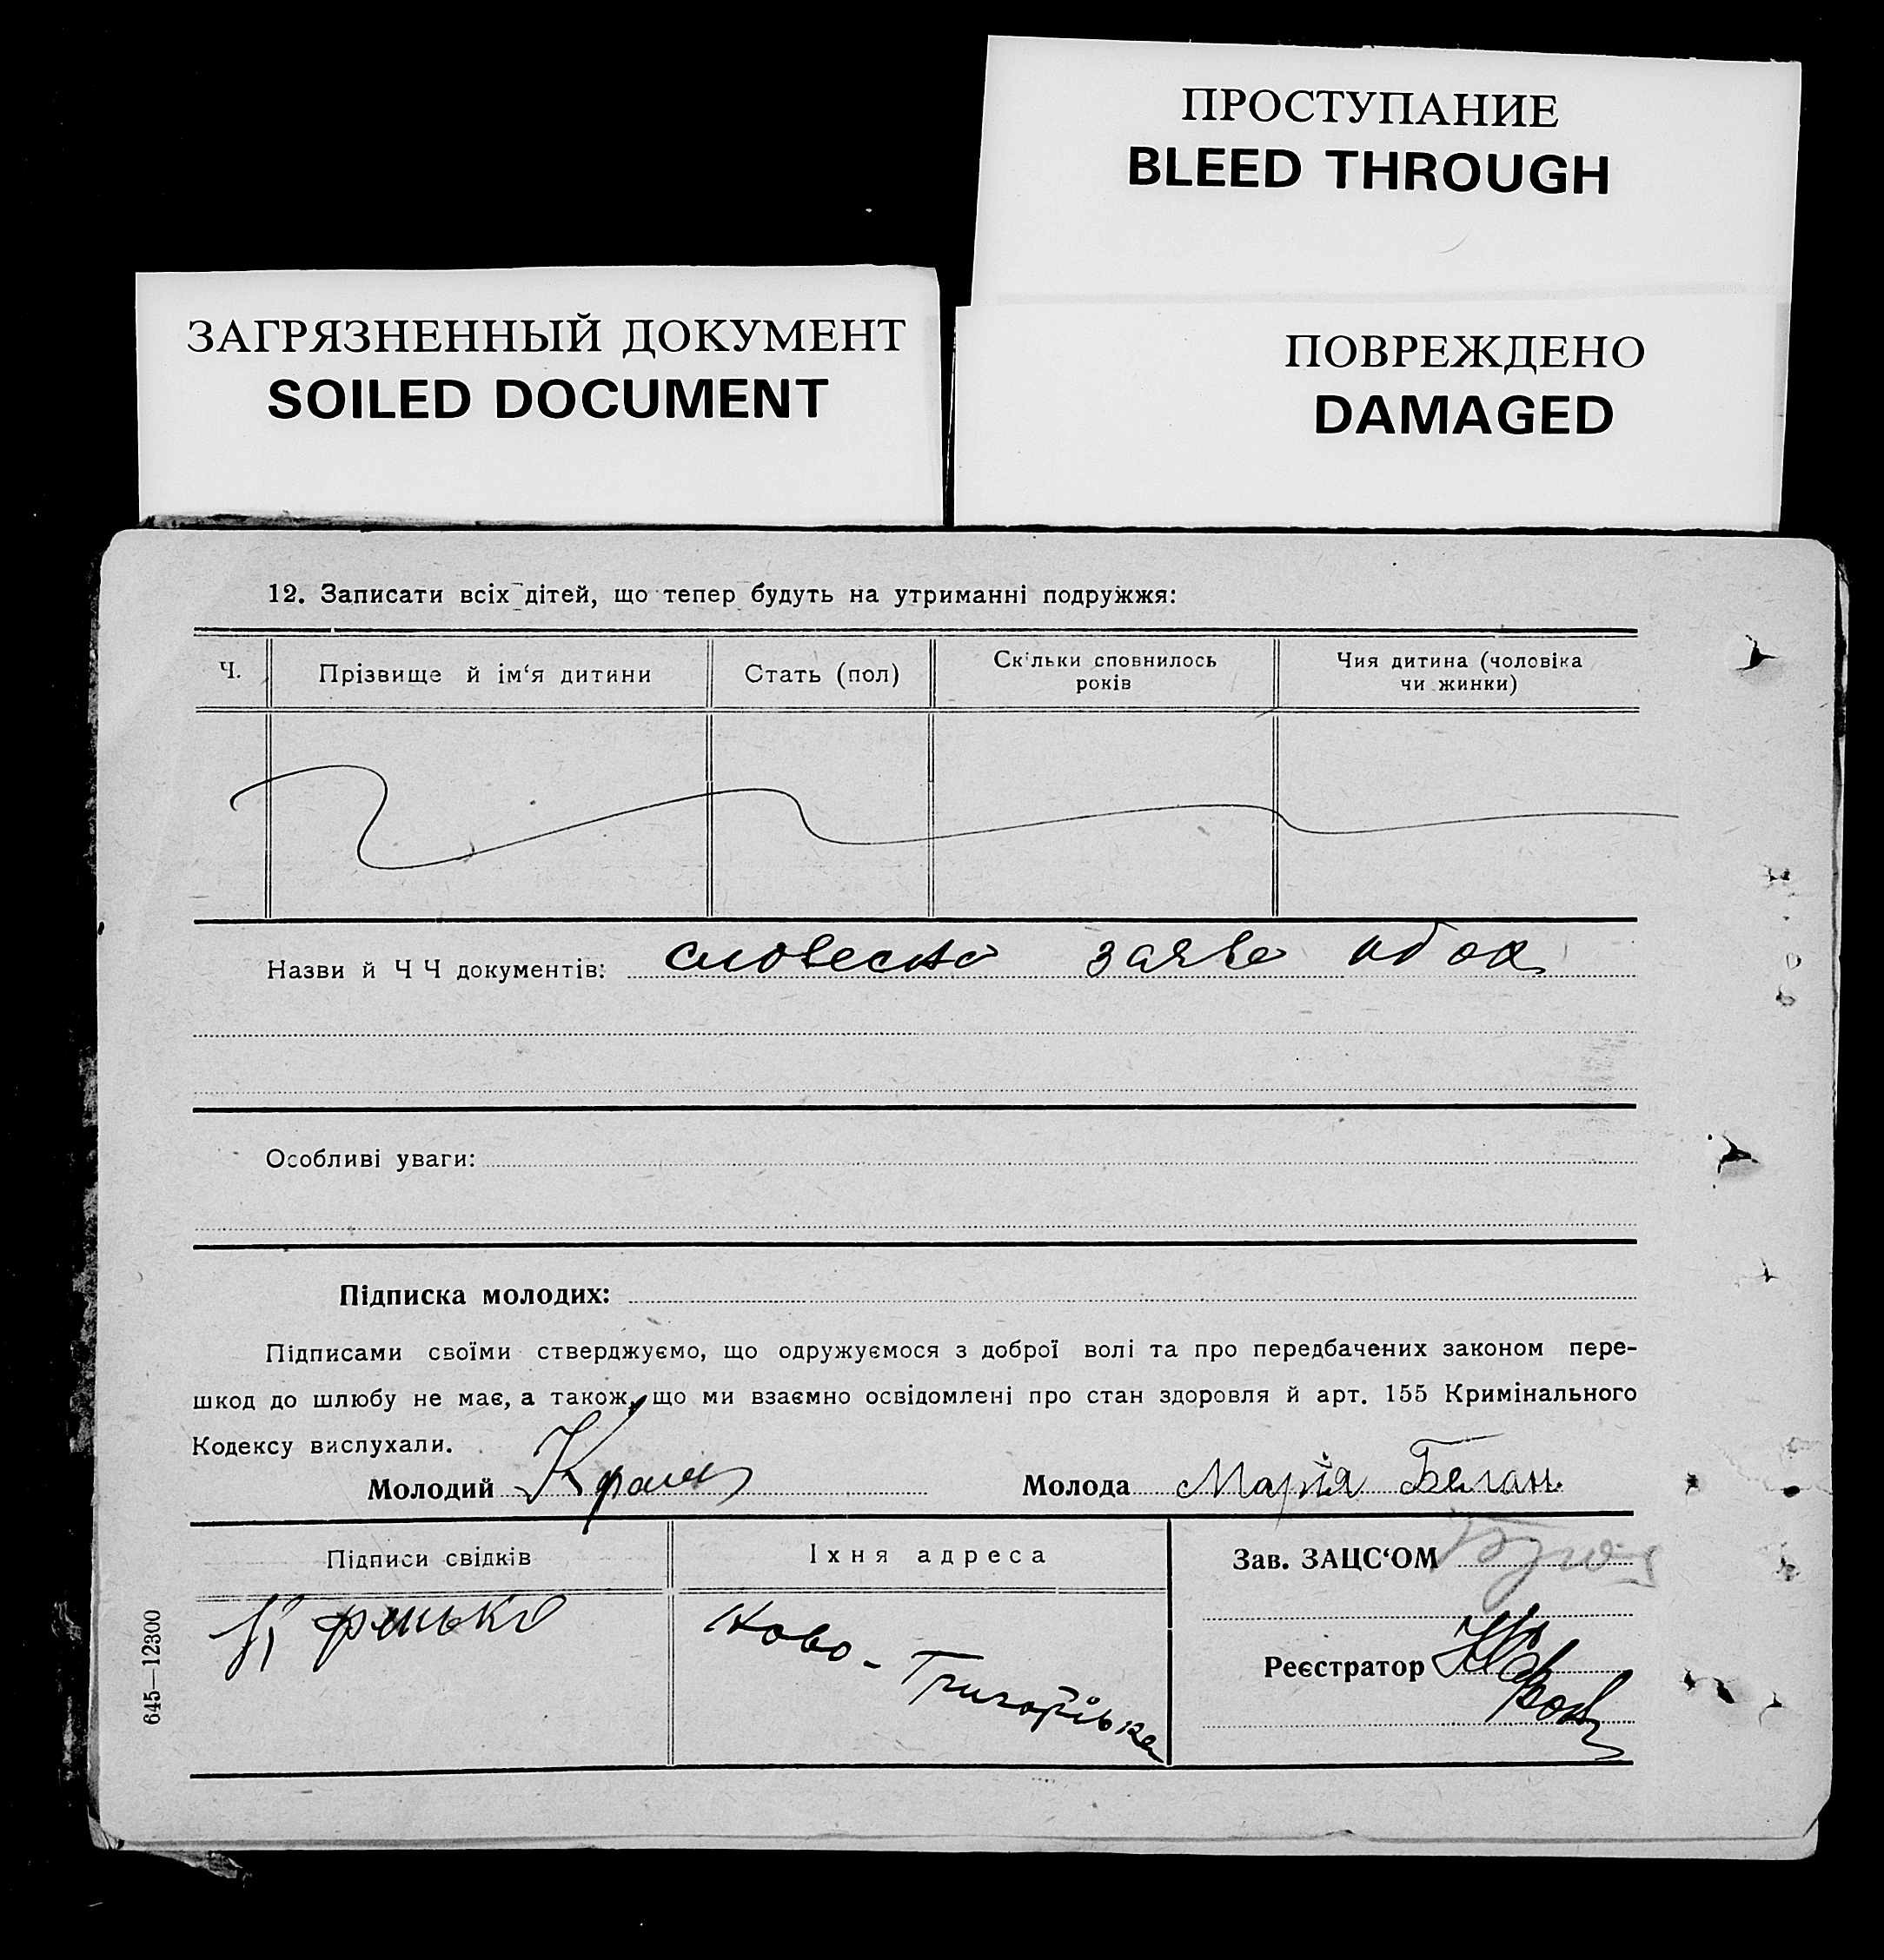 ПРОСТУПАНИЕ
BLEED THROUGH
ЗАГРЯЗНЕННЫЙ ДОКУМЕНТ
SOILED DOCUMENT
ПОВРЕЖДЕНО
DAMAGED
12. Записати всіх дітей, що тепер будуть на утриманні подружжя:
Ч. Прізвище й ім‘я дитини Стать (пол) Скільки сповнилось років Чия дитина (чоловіка чи жинки)
Назви й Ч Ч документів: словесна заява обох
Особливі уваги:
Підписка молодих:
Підписами своїми стверджуємо, що одружуємося з доброї волі та про передбачених законом пере-
шкод до шлюбу не має, а також, що ми взаємно освідомлені про стан здоровля й арт. 155 Кримінального
Кодексу вислухали.
Молодий Молода Марія Белан.
Підписи свідків Їхня адреса Зав. ЗАЦС‘ОМ
Ново-Григорівка
Реєстратор
645—12300